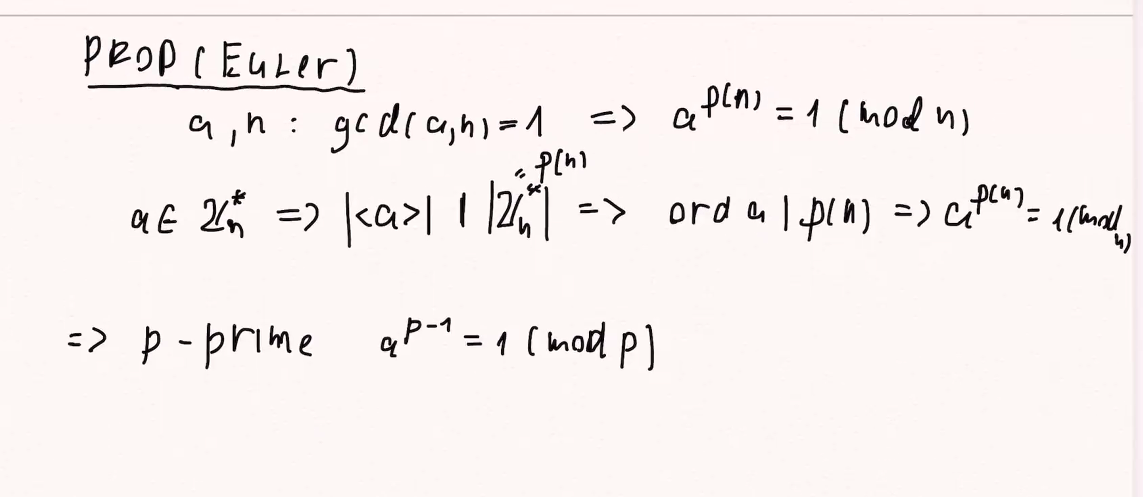 PROP (Euler)
a, n : gcd(a,n)=1 => a^φ(n) = 1 (mod n)
a ∈ ℤn* => |<a>| | |ℤn*| = φ(n) => ord a | φ(n) => a^φ(n) = 1 (mod n)
=> p - prime a^p-1 = 1 (mod p)